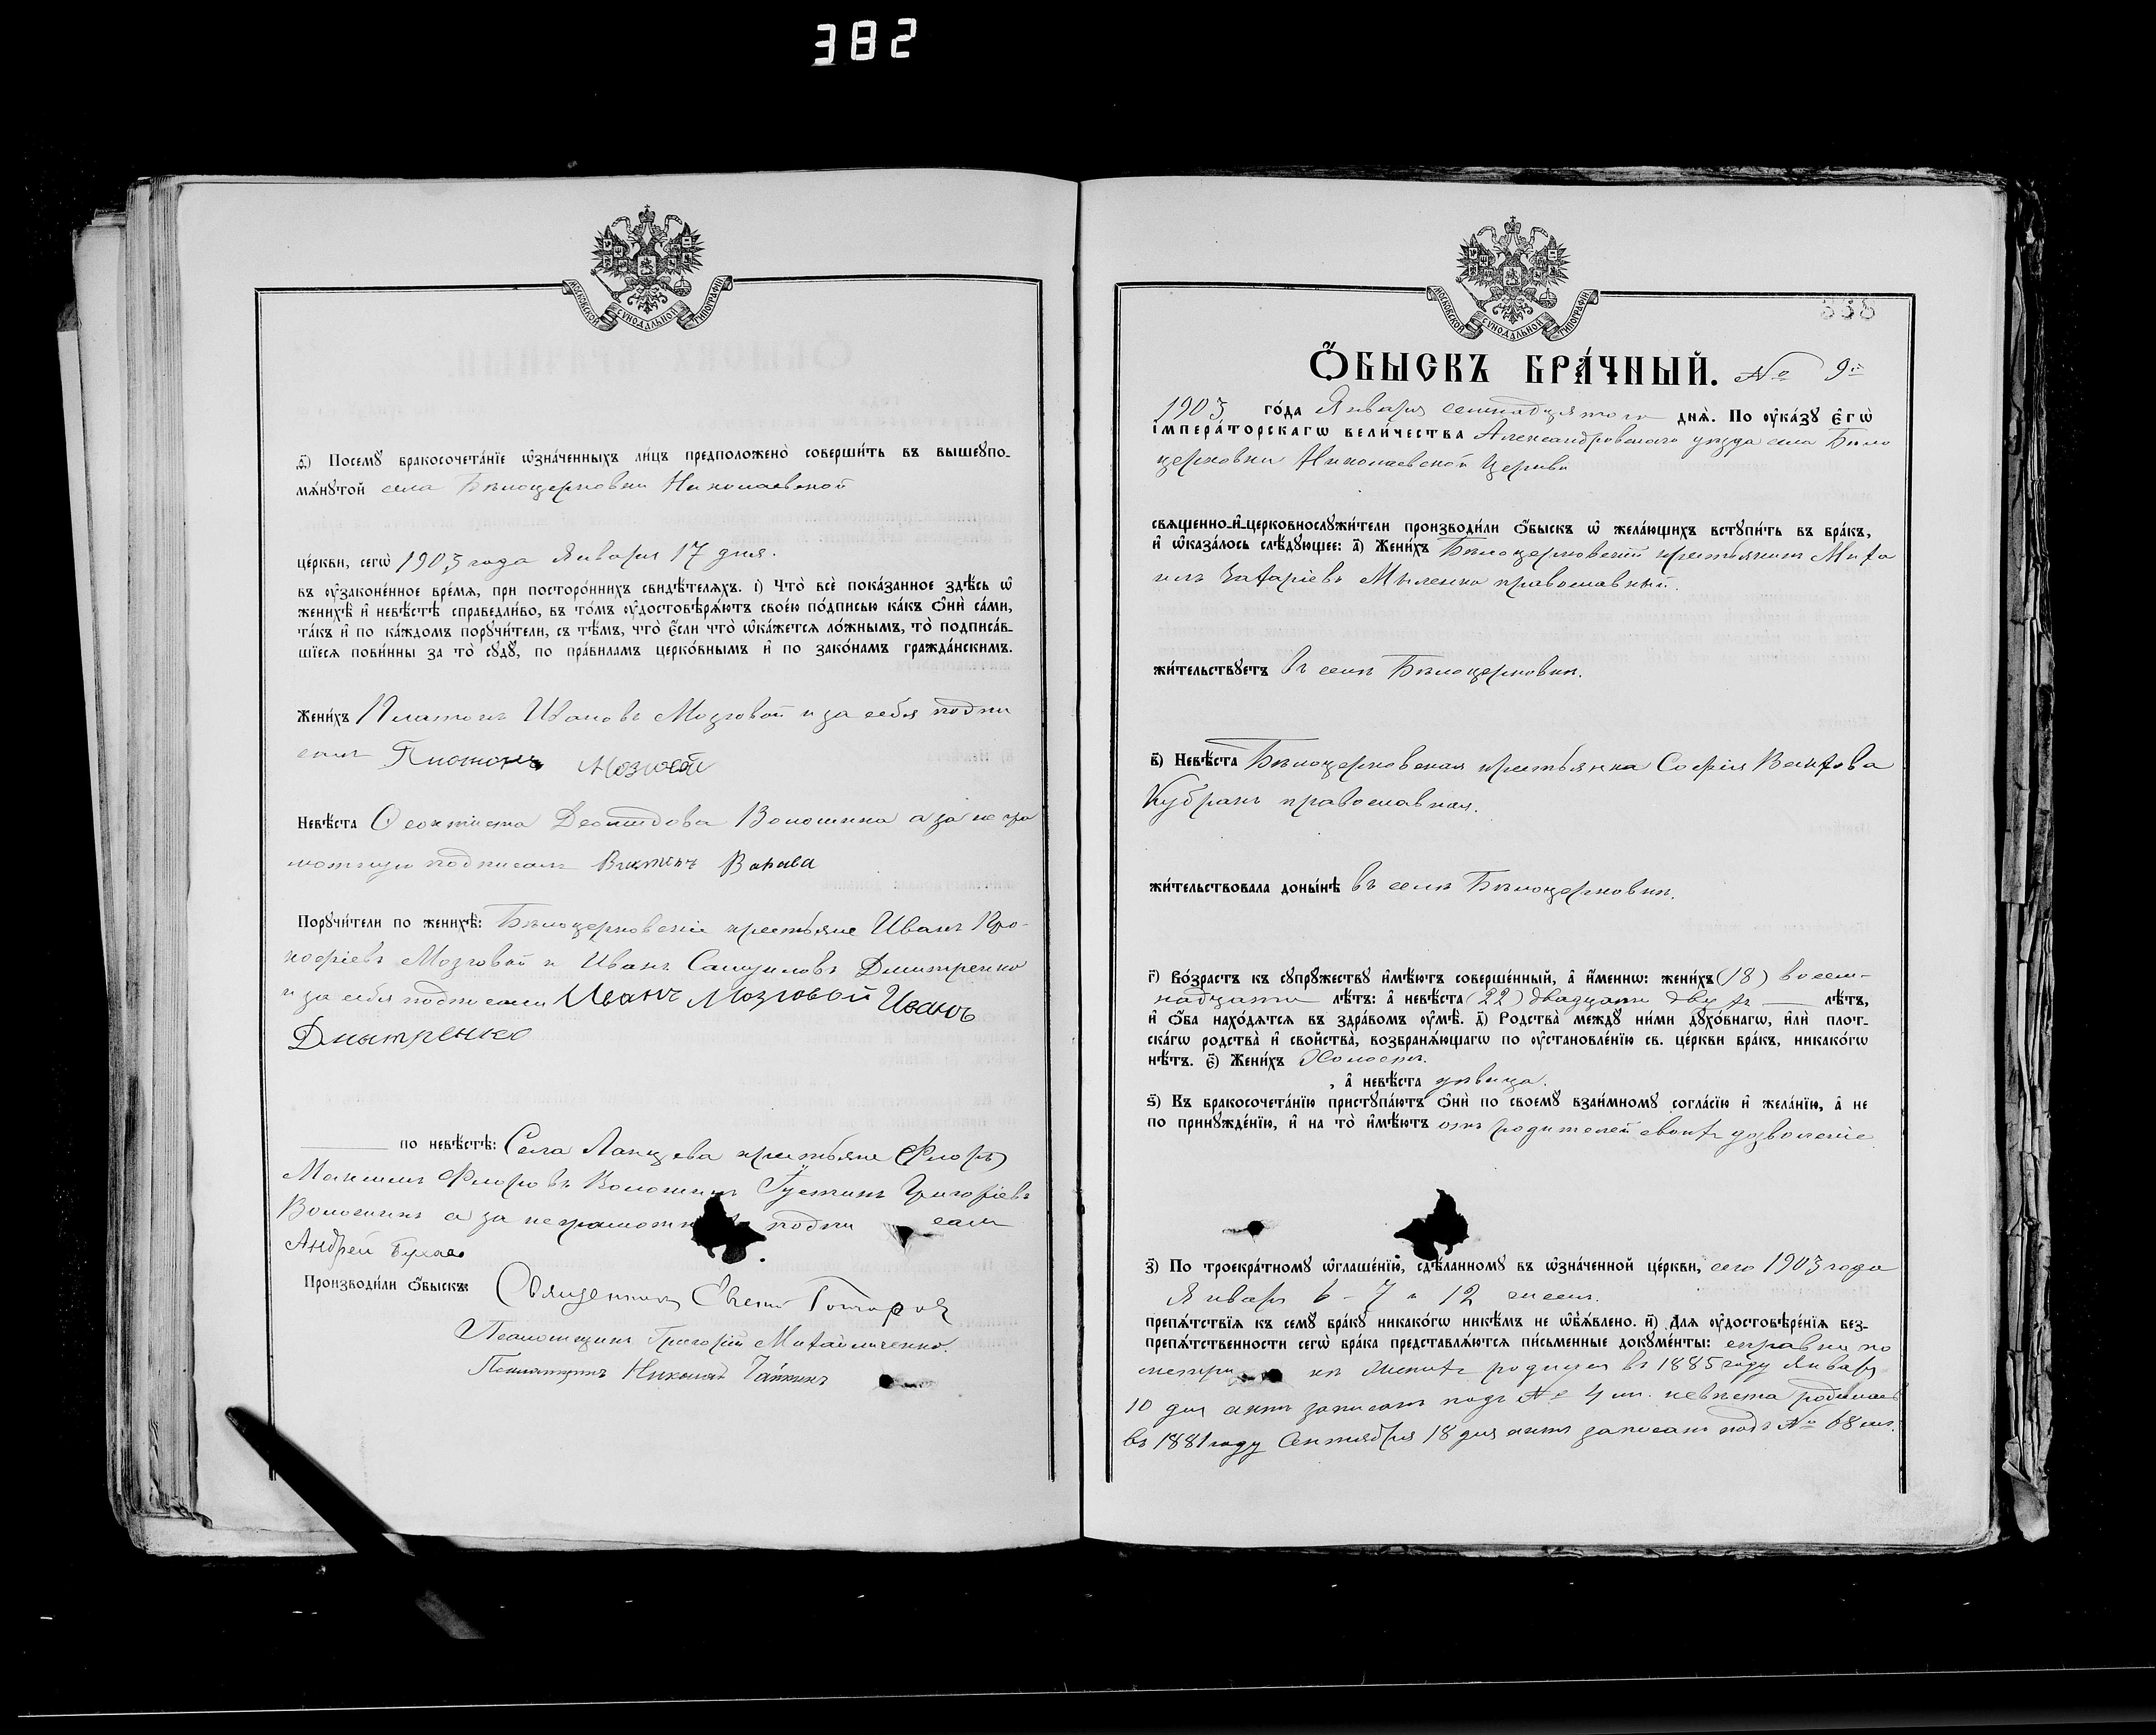 382
МОСКОВСКОЙ СѴНОДАЛЬНОЙ ТИПОГРАФІИ
ѳ҃) Посемꙋ̀ бракосочета́нїе ѡ҆зна́ченныхъ ли́цъ предположено̀ соверши́ть въ вышеꙋпо-
мѧ́нꙋтой села Бѣлоцерковки Николаевской
це́ркви, сегѡ̀ 1903 года Января 17 дня.
въ оу҆зако́ненное вре́мѧ, при посторо́ннихъ свидѣ́телѧхъ. і҃) Что̀ всѐ пока́занное здѣ́сь ѡ҆
женихѣ̀ и҆ невѣ́стѣ справедли́во, въ то́мъ оу҆достовѣрѧ́ютъ свое́ю по́дписью ка́къ ѻ҆нѝ са́ми,
та́къ и҆ по ка́ждомъ порꙋчи́тели, съ тѣ́мъ, что̀ є҆́сли что̀ ѡ҆ка́жетсѧ ло́жнымъ, то̀ подписа́в-
шїесѧ пови́нны за то̀ сꙋдꙋ̀, по пра́виламъ церко́внымъ и҆ по зако́намъ гражда́нскимъ.
Жени́хъ Платонъ Ивановъ Мозговой и за себя подпи
салъ Платонъ Мозговой
Невѣ́ста Ѳеоктиста Волошина а за негра
мотную подписалъ
Порꙋчи́тели по женихѣ̀: Бѣлоцерковскіе крестьяне Иванъ Про-
кофіевъ Мозговой и Иванъ Самуиловъ Дмитренко
и за себя подписали Иванъ Мозговой Иванъ
Дмитренко
по невѣ́стѣ: Села крестьяне
Максимъ Флоровъ Волошинъ Григоріевъ
Волошинъ а за неграмотныхъ подпи салъ
Андрей
Производи́ли ѻ҆́быскъ: Священникъ
Псаломщикъ Григорій Михайличенко.
Николай
МОСКОВСКОЙ СѴНОДАЛЬНОЙ ТИПОГРАФІИ
338
Ѻ҆́БЫСКЪ БРА́ЧНЫЙ. № 9й
1903 го́да Января семнадцятого днѧ̀. По оу҆ка́зꙋ Є҆гѡ̀
І҆мпера́торскагѡ вели́чества Александровскаго уѣзда села Бѣло
церковки Николаевской церкви
свѧщенно-и҆-церковнослꙋжи́тели производи́ли ѻ҆́быскъ ѡ҆ жела́ющихъ встꙋпи́ть въ бра́къ,
и҆ ѡ҆каза́лось слѣ́дꙋющее: а҃) Жени́хъ Бѣлоцерковскій крестьянинъ Миха
илъ Захаріевъ Мыленко православный.
жи́тельствꙋетъ въ селѣ Бѣлоцерковкѣ.
в҃) Невѣ́ста Бѣлоцерковская крестьянка Софія
Кубракъ православная.
жи́тельствовала доны́нѣ въ селѣ Бѣлоцерковкѣ.
г҃) Во́зрастъ къ сꙋпрꙋ́жествꙋ и҆мѣ́ютъ соверше́нный, а҆ и҆́менно: жени́хъ (18) восем-
надцати лѣ́тъ: а҆ невѣ́ста (22) двадцати двухъ лѣ́тъ,
и҆ ѻ҆́ба нахо́дѧтсѧ въ здра́вомъ оу҆мѣ̀. д҃) Родства̀ междꙋ̀ ни́ми дꙋхо́внагѡ, и҆лѝ плот-
ска́гѡ родства̀ и҆ свойства̀, возбранѧ́ющагѡ по оу҆становле́нїю св. це́ркви бра́къ, никако́гѡ
нѣ́тъ. є҃) Жени́хъ Холостъ.
, а҆ невѣ́ста дѣвица.
ѕ҃) Къ бракосочета́нїю пристꙋпа́ютъ ѻ҆нѝ по своемꙋ̀ взаи́мномꙋ согла́сїю и҆ жела́нїю, а҆ не
по принꙋжде́нїю, и҆ на то̀ и҆мѣ́ютъ отъ родителей своихъ дозволеніе
з҃) По троекра́тномꙋ ѡ҆глаше́нїю, сдѣ́ланномꙋ въ ѡ҆зна́ченной це́ркви, сего 1903 года
Января 6 - 7 и 12 чиселъ.
препѧ́тствїѧ къ семꙋ̀ бра́кꙋ никако́гѡ никѣ́мъ не ѡ҆б̾ѧ́влено. и҃) Длѧ оу҆достовѣре́нїѧ без-
препѧ́тственности сегѡ̀ бра́ка представлѧ́ютсѧ пи́сьменные докꙋме́нты: справки по
метри къ женихъ родился въ 1885 году Января
10 дня актъ записанъ подъ № 4 м. невѣста родилась
въ 1881 году Сентября 18 дня актъ записанъ подъ № 68 ж.